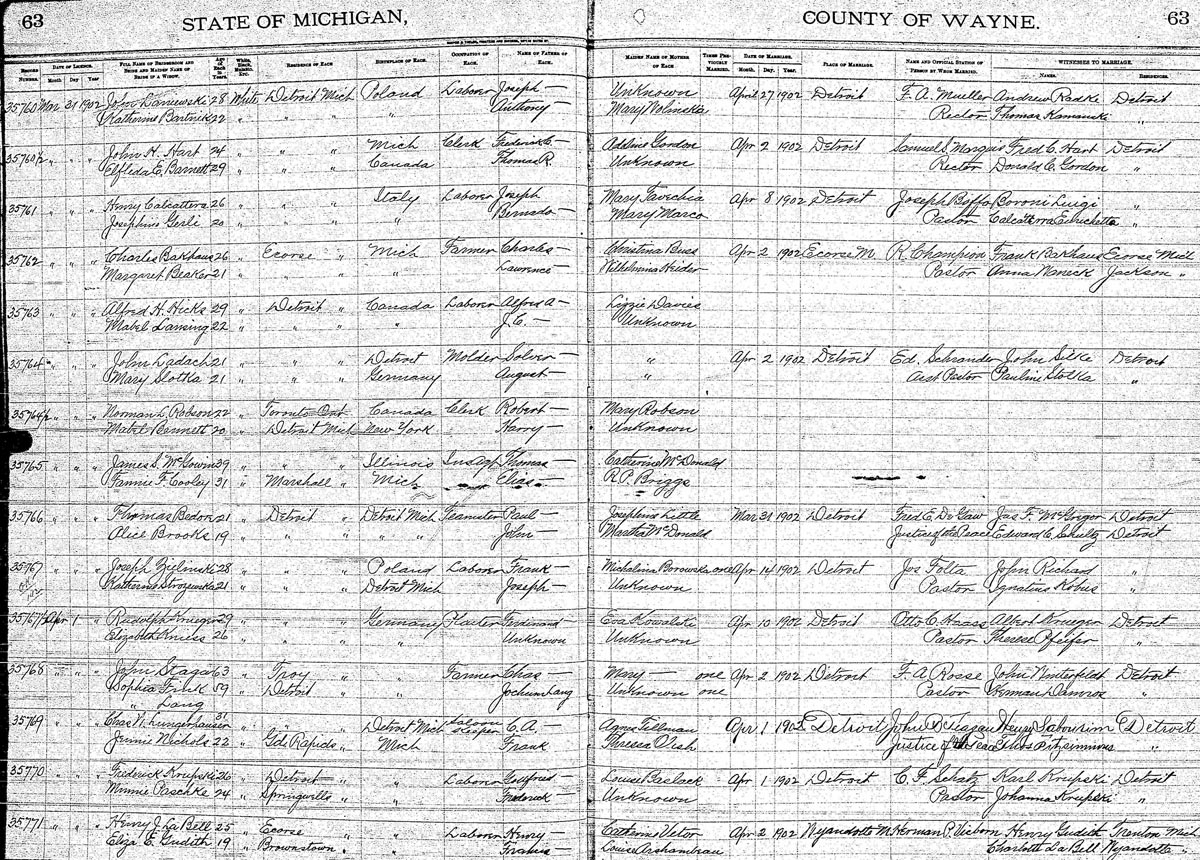 63 STATE OF MICHIGAN, COUNTY OF WAYNE. 63
RECORD NUMBER. DATE OF LICENSE. Month Day Year FULL NAME OF BRIDEGROOM AND BRIDE AND MAIDEN NAME OF BRIDE IF A WIDOW. Age of Each in Years. White, Black, Mulatto, Etc. RESIDENCE OF EACH. BIRTHPLACE OF EACH. OCCUPATION OF EACH. NAME OF FATHER OF EACH. MAIDEN NAME OF MOTHER OF EACH. TIMES PREVIOUSLY MARRIED. DATE OF MARRIAGE. Month. Day. Year. PLACE OF MARRIAGE. NAME AND OFFICIAL STATION OF PERSON BY WHOM MARRIED. WITNESSES TO MARRIAGE. NAMES. RESIDENCES.
35760 Mar 31 1902 John Laniewski 28 White Detroit Mich Poland Laborer Joseph — Unknown April 27 1902 Detroit F. A. Mueller Andrew Radke Detroit
Katherine Bartnik 22 " " " " Anthony — Mary Rector Thomas "
35760½ " " " John H. Hart 24 " " " Mich Clerk Frederick C. — Addine Gordon Apr 2 1902 Detroit Samuel S. Marquis Fred C. Hart Detroit
Elfleda E. Barnett 29 " " " Canada Thomas R. Unknown Rector Donald C. Gordon "
35761 " " " Henry Calcattera 26 " " " Italy Laborer Joseph Mary Apr 8 1902 Detroit Joseph Boffo Boroni Luigi "
Josephine Gerli 20 " " " " Bernado — Mary Marco Pastor Calcatterra "
35762 " " " Charles Bakhaus 26 " Ecorse " Mich Farmer Charles — Christina Buss Apr 2 1902 Ecorse M. R. Champion Frank Bakhaus Ecorse Mich
Margaret Beaker 21 " " " " Lawrence — Wilhelmina Pastor Anna Jackson "
35763 " " " Alfred H. Hicks 29 " Detroit " Canada Laborer Alfred A — Lizzie Davies
Mabel Lansing 22 " " " " J. C. — Unknown
35764 " " " John Ladach 21 " " " Detroit Molder — " Apr 2 1902 Detroit Ed. Schrander John Silke Detroit
Mary Slotka 21 " " " Germany August — " Asst Pastor Pauline Slotka "
35764½ " " " Norman L. Robson 22 " Toronto Ont Canada Clerk Robert — Mary Robson
Mabel Bennett 20 " Detroit Mich New York Harry — Unknown
35765 " " " James S. McGowin 39 " " " Illinois Ins Agt Thomas — Catherine McDonald
Fannie F. Cooley 31 " Marshall " Mich Elias — R. P. Briggs
35766 " " " Thomas Bedore 21 " Detroit " Detroit Mich Teamster Paul — Josephine Little Mar 31 1902 Detroit Fred E. DeGaw Jas F. McGregor Detroit
Alice Brooks 19 " " " " " John — Martha McDonald Justice of the Peace Edward C. Schultz Detroit
35767 " " " Joseph Zielinski 28 " " " Poland Laborer Frank — Michalina Borowska one Apr 14 1902 Detroit Jos Folta John Richard "
Katherine 21 " " " Detroit Mich Joseph — Unknown Pastor Ignatius Kobus "
35767½ Apr 1 " Rudolph Krueger 29 " " " Germany Ferdinand Eva Kowalski Apr 10 1902 Detroit Otto C. Haass Albert Krueger Detroit
Elizabeth Kniess 26 " " " " Unknown Unknown Pastor Therese Pfeifer "
35768 " " " John Staga 63 " Troy " " Farmer Chas — Mary — one Apr 2 1902 Detroit F. A. Rosse John Winterfeldt Detroit
Sophia Fink 59 " Detroit " " Jochum Lang Unknown one Pastor Herman Damrox "
" Lang
35769 " " " Chas W. 31 " " " Detroit Mich Saloon Keeper C. A. Agnes Tillman Apr 1 1902 Detroit John Teagan Henry Sabourim Detroit
Jennie Nichols 22 " Gd Rapids " Mich Frank Theresa Justice of the Peace Fitzsimmons "
35770 " " " Frederick Krupski 26 " Detroit " " Laborer Gottfried — Louise Apr 1 1902 Detroit C. F. Schatz Karl Krupski Detroit
Minnie Paschke 24 " Springwells " " Frederick — Unknown Pastor Johanna Krupski "
35771 " " " Henry J. LaBell 25 " Ecorse " " Laborer Henry — Catherine Victor Apr 2 1902 Wyandotte M Herman P. Henry Gudith Trenton Mich
Eliza E. Gudith 19 " Brownstown " " Francis — Louise Charlotte LaBell Wyandotte "